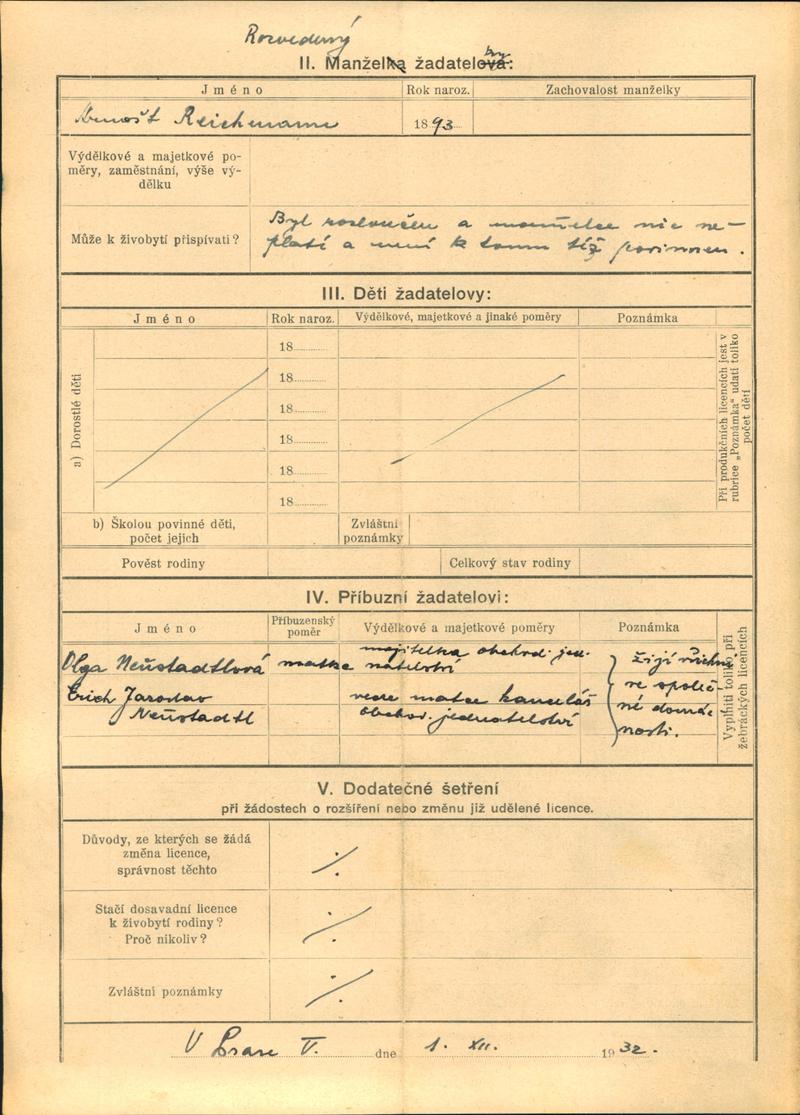 Rozvedený
II. Manželka žadatelova: by
Jméno Rok naroz. Zachovalost manželky
Arnošt Reichmann 1893
Výdělkové a majetkové po-
měry, zaměstnání, výše vý-
dělku
Může k živobytí přispívati?
Byl rozloučen a manželce nic ne-
platí a není k tomu též povinnen.
III. Děti žadatelovy:
Jméno Rok naroz. Výdělkové, majetkové a jinaké poměry Poznámka
a) Dorostlé děti
18
18
18
18
18
18
Při produkčních licencích jest v
rubrice „Poznámka" udati toliko
počet dětí
b) Školou povinné děti,
počet jejich
Zvláštní
poznámky
Pověst rodiny Celkový stav rodiny
IV. Příbuzní žadatelovi:
Jméno Příbuzenský
poměr Výdělkové a majetkové poměry Poznámka
Olga Neustadtlová matka majitelka obchod. jed-
natelství
Erich Jaroslav
Neustadtl
vede matce kancelář
obchod. jednatelství
žijí všichni
ve společ
né domác
nosti.
Vyplniti toliko při
žebráckých licencích
V. Dodatečné šetření
při žádostech o rozšíření nebo změnu již udělené licence.
Důvody, ze kterých se žádá
změna licence,
správnost těchto
Stačí dosavadní licence
k živobytí rodiny?
Proč nikoliv?
Zvláštní poznámky
V Praze V. dne 1. XII. 1932.